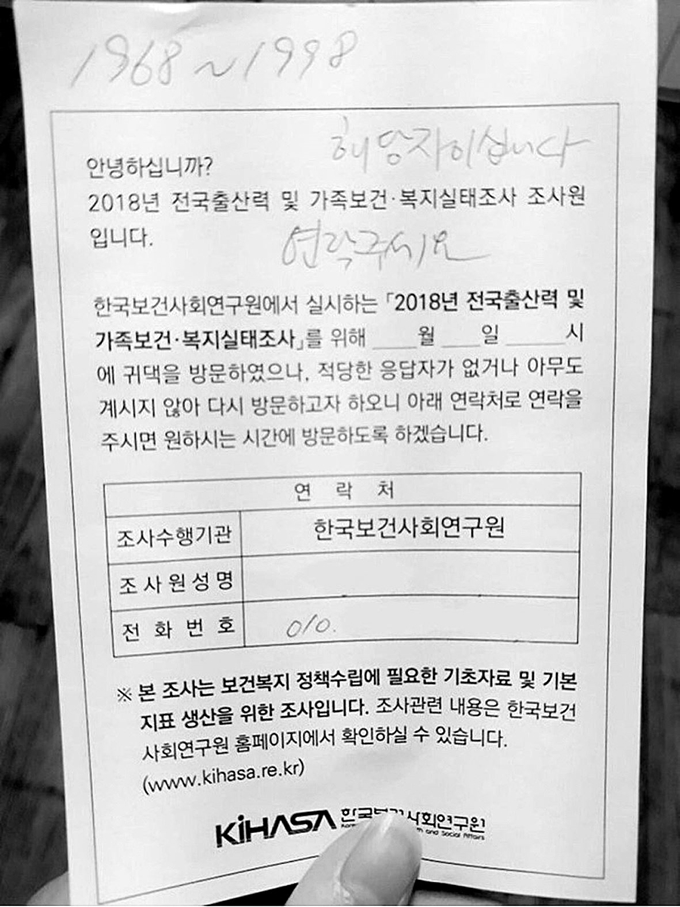 1968~1998
해당자이십니다
안녕하십니까?
2018년 전국출산력 및 가족보건·복지실태조사 조사원
입니다.
연락주세요
한국보건사회연구원에서 실시하는 「2018년 전국출산력 및
가족보건·복지실태조사」를 위해 ____월 ____일 ____시
에 귀댁을 방문하였으나, 적당한 응답자가 없거나 아무도
계시지 않아 다시 방문하고자 하오니 아래 연락처로 연락을
주시면 원하시는 시간에 방문하도록 하겠습니다.
연 락 처
조사수행기관 한국보건사회연구원
조사원성명
전 화 번 호 010.
※ 본 조사는 보건복지 정책수립에 필요한 기초자료 및 기본
지표 생산을 위한 조사입니다. 조사관련 내용은 한국보건
사회연구원 홈페이지에서 확인하실 수 있습니다.
(www.kihasa.re.kr)
KiHASA 한국보건사회연구원
and Social Affairs